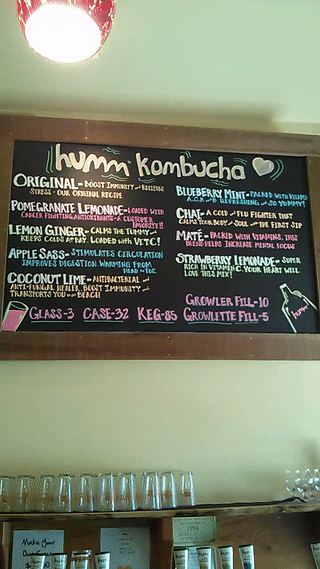 humm kombucha
ORIGINAL- BOOST IMMUNITY RELIEVES
STRESS - OUR ORIGINAL RECIPE
POMEGRANATE LEMONADE- LOADED WITH
CANCER FIGHTING ANTIOXIDANTS- A CUSTOMER
FAVORITE!!
LEMON GINGER- CALMS THE TUMMY
KEEPS COLDS AT BAY. LOADED WITH VIT C!
APPLE SASS- STIMULATES CIRCULATION
IMPROVES DIGESTION. WARMING FROM
HEAD TO TOE
COCONUT LIME- ANTIBACTERIAL
ANTI-FUNGAL HEALER. BOOST IMMUNITY
TRANSPORTS YOU BEACH
BLUEBERRY MINT- PACKED WITH
REFRESHING SO YUMMY!
CHAI- A COLD FLU FIGHTER THAT
CALMS YOUR BODY SOUL THE FIRST SIP
MATÉ- PACKED WITH VITAMINS, THIS
BLEND HELPS INCREASE MENTAL FOCUS
STRAWBERRY LEMONADE- SUPER
RICH IN VITAMIN C. YOUR HEART WILL
LOVE THIS MIX!
GROWLER FILL-10
GLASS-3 CASE-32 KEG-85 GROWLETTE FILL-5
humm
Make Your
Own